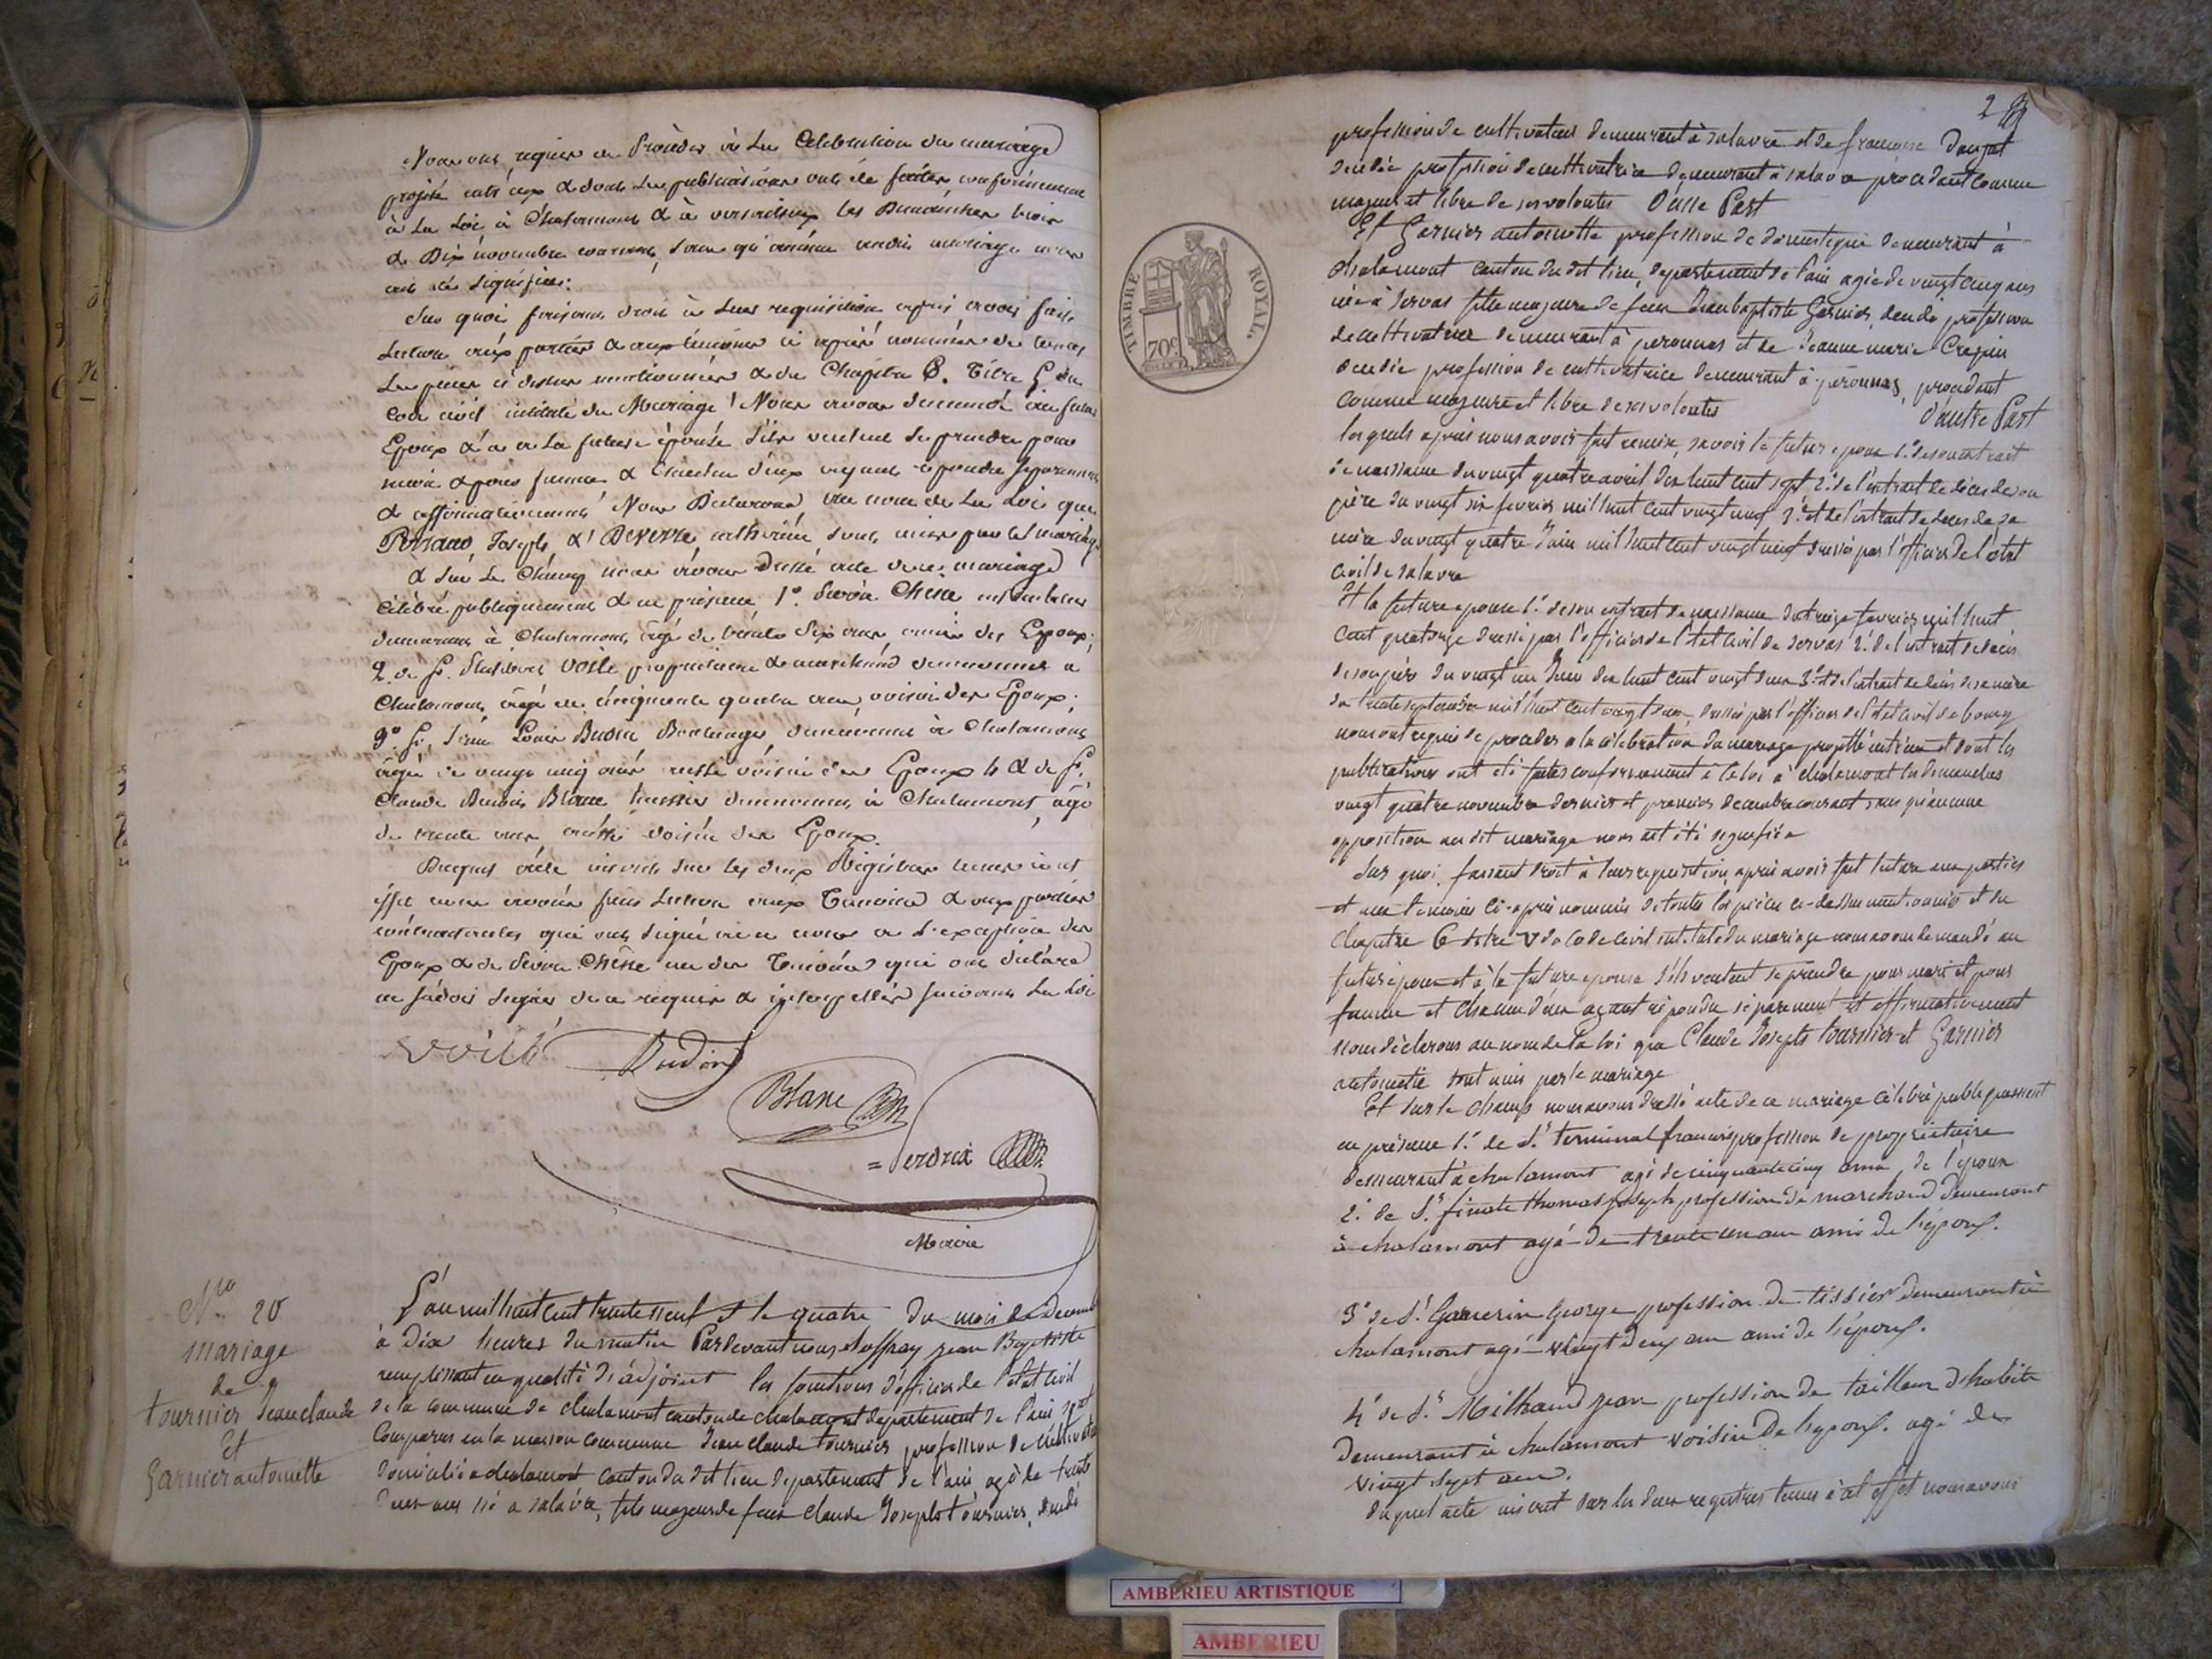 Nous ont requis de Procéder à la Célébration du mariage
projetté entr'eux & dont les publications ont été faites conformément
à la Loi à Chalamont & à versailleux les Dimanches trois
& Dix novembre courant, sans qu'aucune audit mariage nous
ait été signifiée.
Sur quoi faisant droit à leur requisition après avoir fait
Lecture aux parties & aux témoins ci après nommés de toutes
Les pièces ci dessus mentionnées & du Chapitre 6. Titre 5. du
Code civil intitulé du Mariage, Nous avons demandé au futur
Epoux & à la future épouse s'ils veulent se prendre pour
mari & pour femme & Chacun d'eux ayant répondu séparement
& affirmativement Nous Déclarons au nom de la Loi que
Joseph & catherine sont unis par le mariage
& sur le Champ nous avons Dressé acte de ce mariage
Célébré publiquement & en présence 1°.
demeurant à Chalamont, âgé de trente six ans ami des Epoux;
2. de Sr. Voilé propriétaire & marchand demeurant à
Chalamont, âgé de cinquante quatre ans, voisin des Epoux;
3° Sr. Louis Budin Boulanger, demeurant à Chalamont
âgé de vingt cinq ans aussi voisin des Epoux 4 & de Sr.
Claude Benoit Blanc huissier demeurant à Chalamont, âgé
de trente ans, aussi voisin des Epoux.
Duquel acte inscrit sur les deux Régistres tenus à cet
effet nous avons fait Lecture aux Temoins & aux parties
contractantes qui ont signé avec nous à l'exception des
Epoux & de un des Temoins qui ont déclaré
ne savoir signer de ce requis & interpellés suivant La Loi
Voilé Budin
Blanc
Perdrix
Maire
No 20
mariage
de
tournier Jean claude
Et
Garnier antoinette
L'an mil huit cent trente neuf & le quatre du mois de Decemb
à Dix heures du matin Pardevant nous Joffray jean Baptiste
remplissant en qualité d'adjoint les fonctions d'officier de l'état civil
de la commune de chalamont canton de chalamont departement de l'ain sont
Comparus en la maison commune Jean claude tournier profession de cultivateur
domicilié a chalamont canton du dit lieu departement de l'ain agé de trente
deux ans né a salavre, fils majeur de feu Claude Joseph tournier, décédé
TIMBRE ROYAL
70c
profession de cultivateur demeurant à salavre et de francoise Daujat
décédée profession de cultivatrice demeurant à salavre procedant comme
majeur et libre de ses volontés D'une Part
Et Garnier antoinette profession de domestique demeurant à
chalamont canton du dit lieu, departement de l'ain agée de vingt cinq ans
née à servas fille majeure de feu Jean baptiste Garnier, décédé profession
de cultivateur demeurant à peronnas et de Jeanne marie Crepin
décédée profession de cultivatrice demeurant à péronnas, procedant
comme majeure et libre de ses volontés d'autre Part
les quels après nous avoir fait remise, savoir le futur epoux 1.° de son extrait
de naissance du vingt quatre avril dix huit cent sept 2.° de l'extrait de décès de son
père du vingt six fevrier mil huit cent vingt neuf 3.° et de l'extrait de deces de sa
mère du vingt quatre Juin mil huit cent vingt neuf dressés par l'officier de l'état
civil de salavre
Et la future epouse 1.° de son extrait de naissance du treize fevrier mil huit
cent quatorze dressé par l'officier de l'état civil de servas 2.° de l'extrait de décès
de son père du vingt un Juin dix huit cent vingt deux 3.° et de l'extrait de décès de sa mère
du trente septembre mil huit cent vingt deux, dressés par l'officier de l'état civil de bourg
nous ont requis de proceder a la célébration du mariage projetté entr'eux et dont les
publications ont été faites conformement à la loi à chalamont les dimanches
vingt quatre novembre dernier et premier decembre courant sans qu'aucune
opposition au dit mariage nous ait été signifiée
Sur quoi, faisant droit à leur requisition après avoir fait lecture aux parties
et aux temoins ci-après nommés de toutes les pièces ci-dessus mentionnées et du
chapitre 6 titre V du Code civil intitulé du mariage nous avons demandé au
futur époux et à la future epouse s'ils veulent se prendre pour mari et pour
femme et chacun d'eux ayant répondu séparement et affirmativement
nous déclarons au nom de la loi que Claude Joseph tournier et Garnier
antoinette sont unis par le mariage
Et sur le champ nous avons dressé acte de ce mariage célébré publiquement
en présence 1.° de S.r terminal francois profession de propriétaire
demeurant à chalamont agé de cinquante cinq ans, de l'époux
2.° de S.r finate thomas joseph profession de marchand demeurant
à chalamont agé de trente un an ami de l'époux.
3° de S.r Gannerin George profession de tissier demeurant à
chalamont agé vingt deux ans ami de l'époux.
4° de S.r Milhaud jean profession de tailleur d'habits
demeurant à chalamont voisin de l'époux. agé de
vingt sept ans.
duquel acte inscrit sur les deux registres tenus à cet effet nous avons
AMBERIEU ARTISTIQUE
AMBERIEU